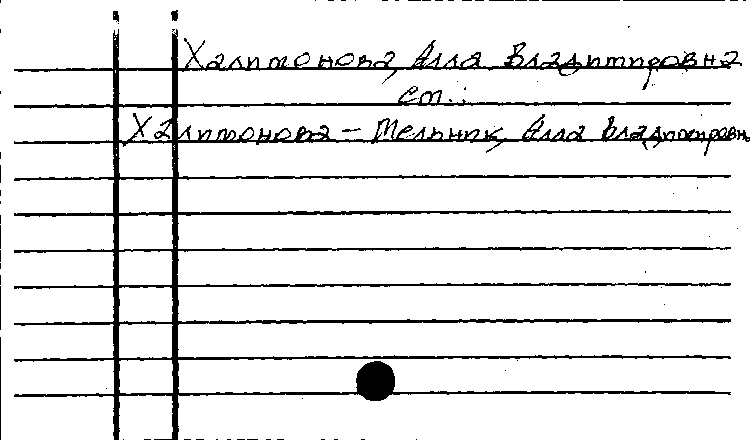 Халитонова, Алла Владимировна
см.:
Халитонова – Мельник, Алла Владимировн